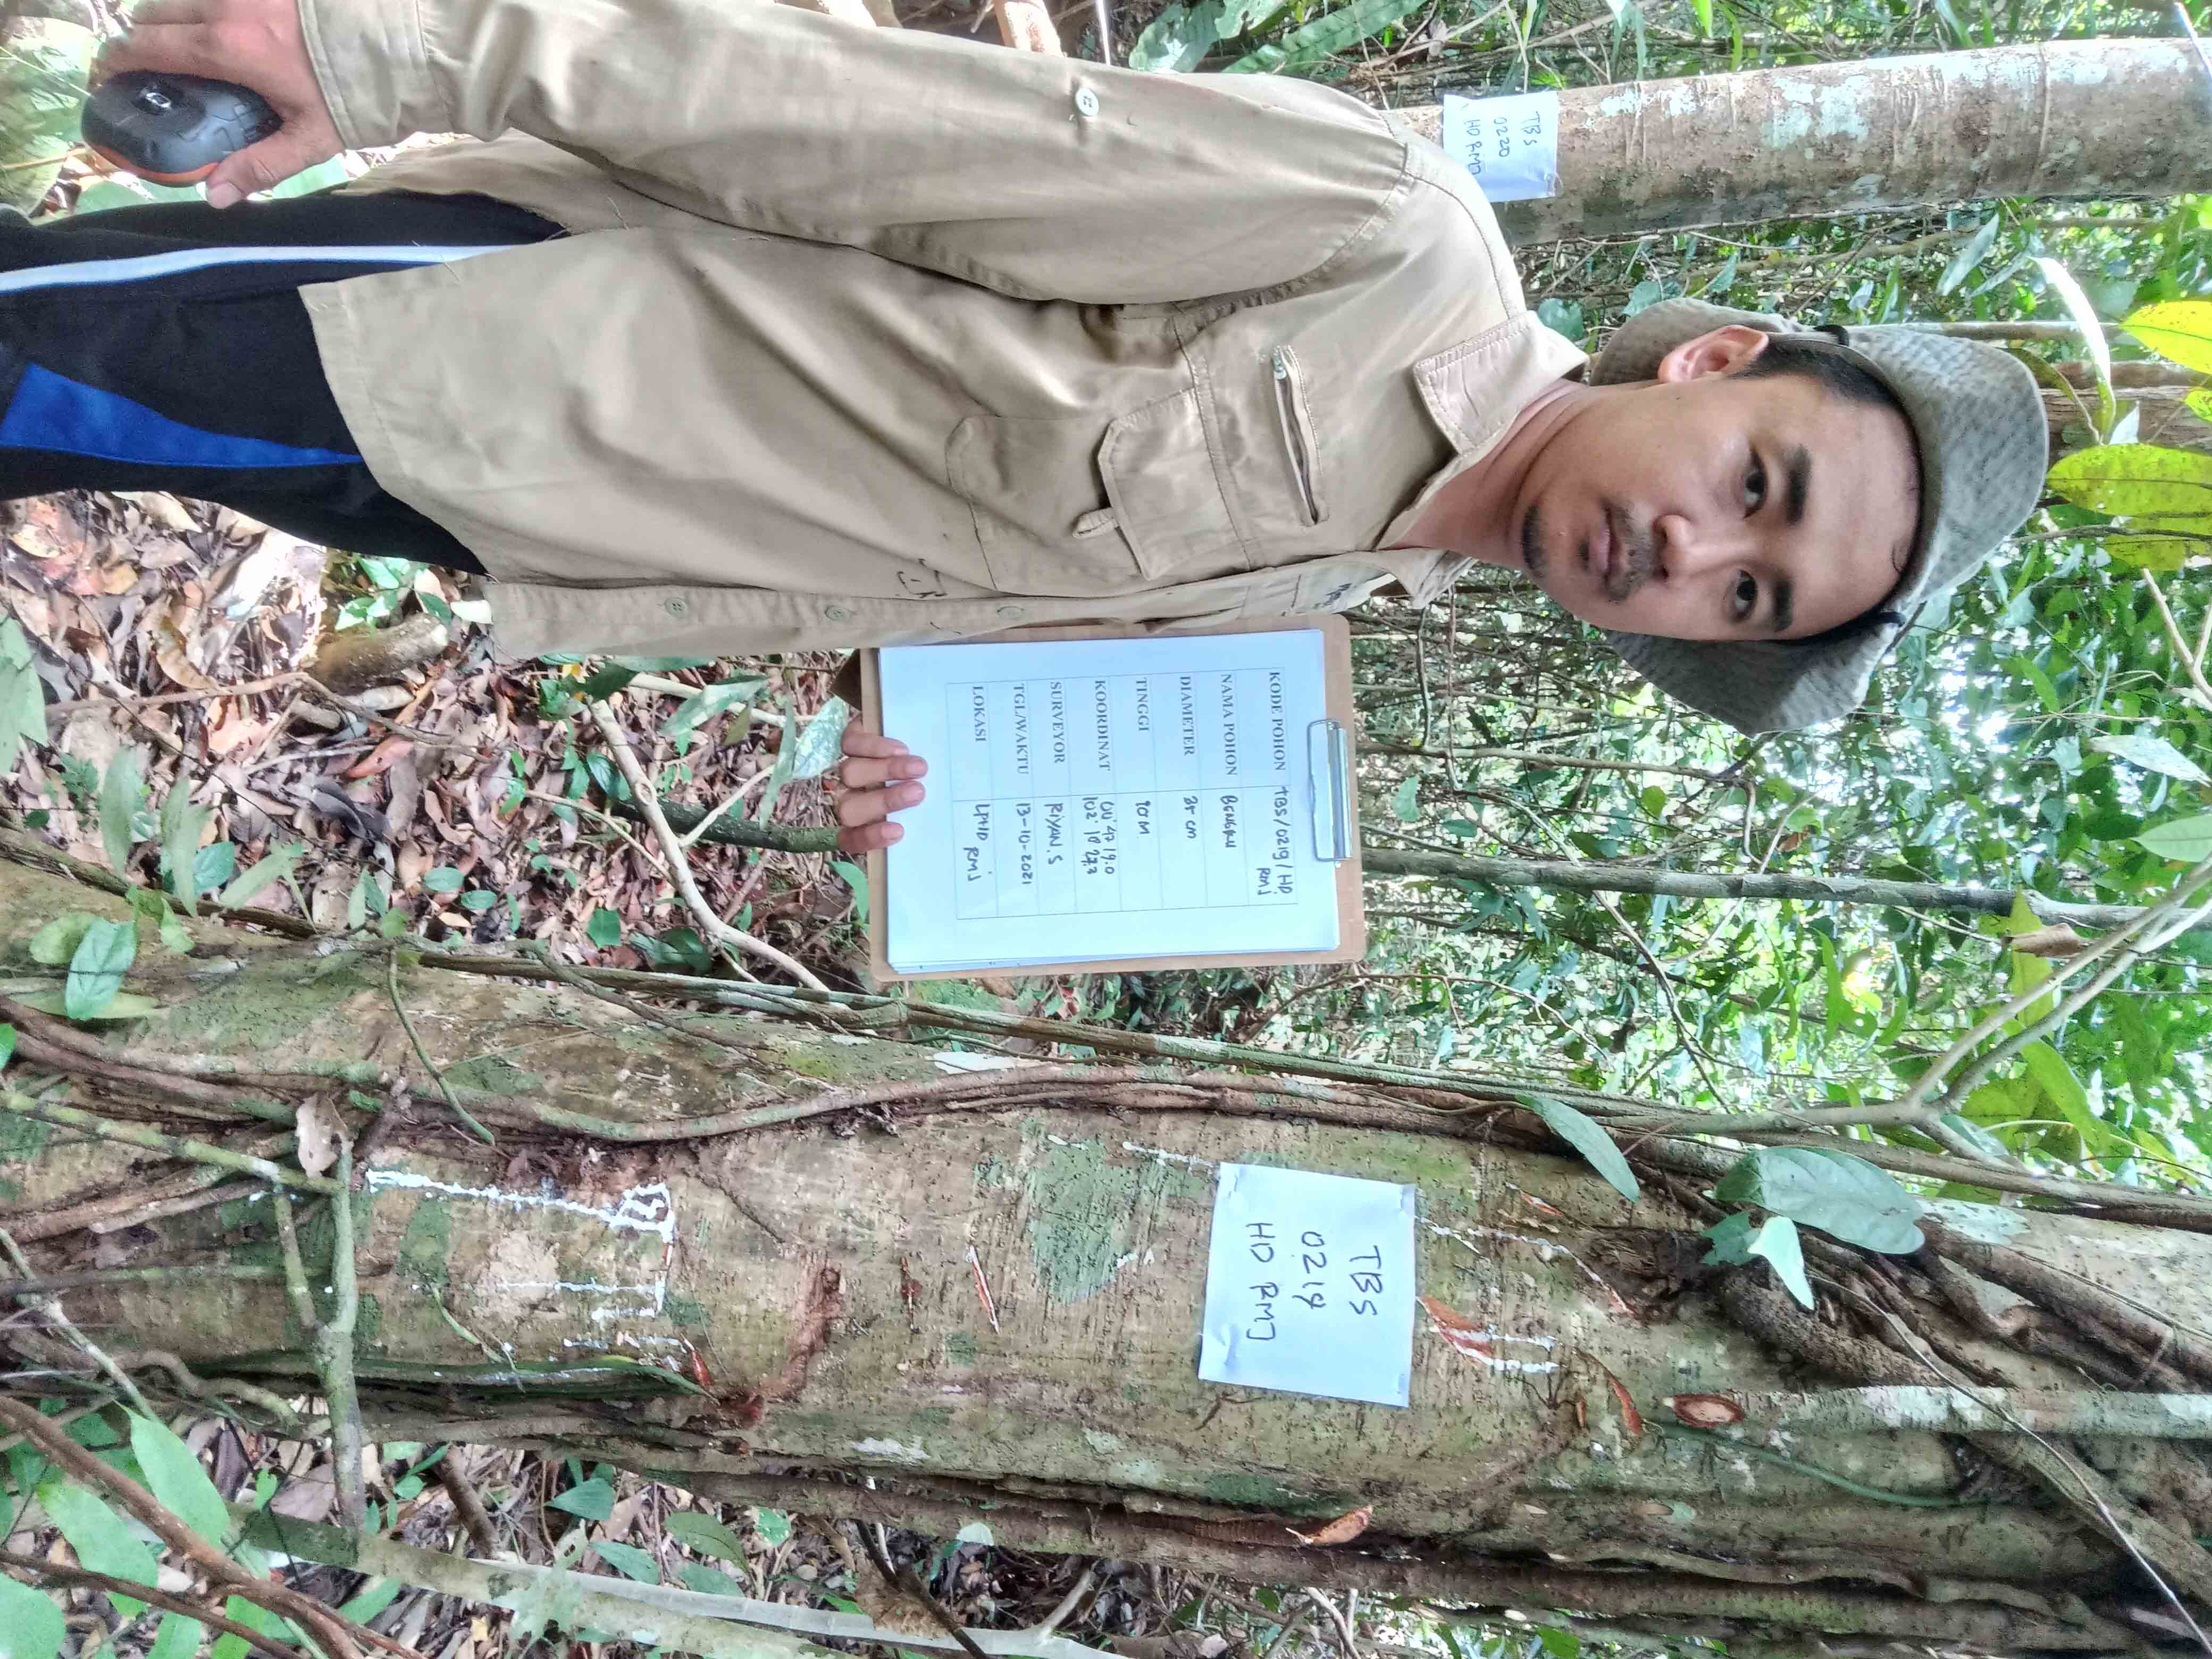 TBS
0220
HD RMJ
KODE POHON TBS/0219/HD
RMJ
NAMA POHON BENGKU
DIAMETER 35 cm
TINGGI 10 M
KOORDINAT 00° 47 19.0
102° 10 27.3
SURVEYOR RIYAN.S
TGL/WAKTU 13-10-2021
LOKASI LPHD
RMJ
TBS
0219
HD RMJ